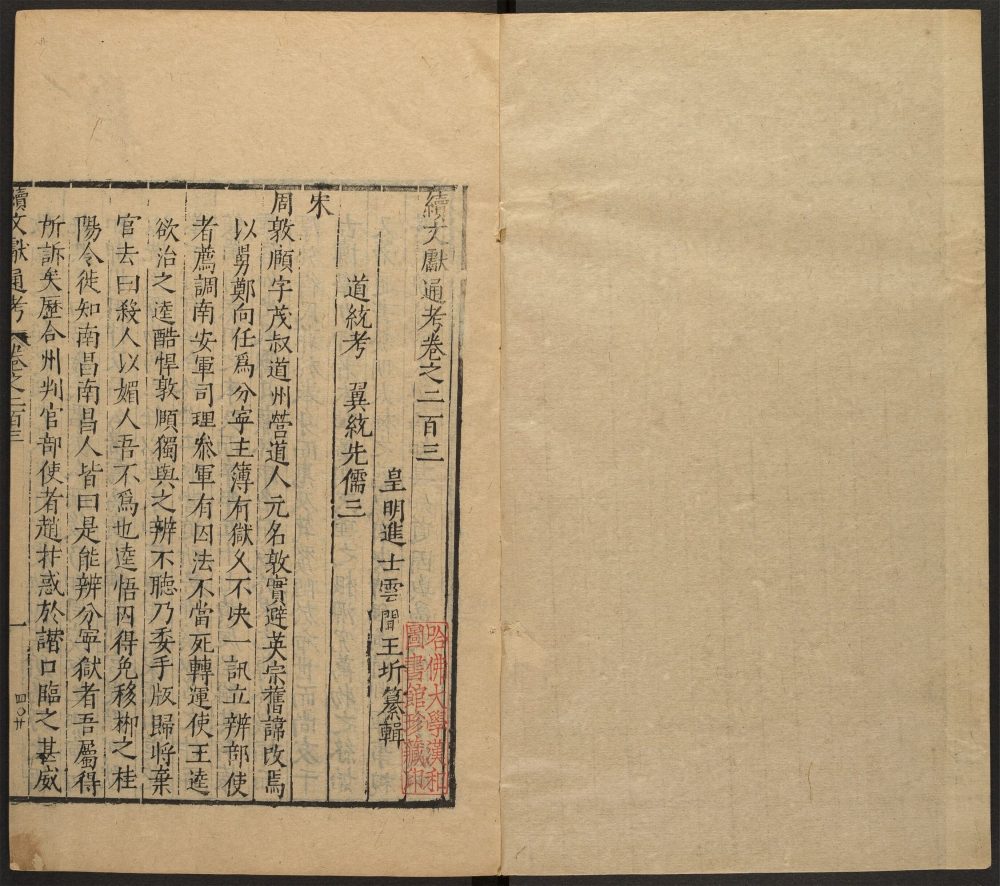 續文獻通考卷之二百三
皇明進士雲間王圻纂輯
道統考 翼統先儒三
宋
周敦頤字茂叔道州營道人元名敦實避英宗舊諱改焉
以舅鄭向任爲分寧主簿有獄久不决一訊立辨部使
者薦調南安軍司理叅軍有囚法不當死轉運使王逵
欲治之逵酷悍敦頤獨與之辨不聽乃委手版歸將棄
官去曰殺人以媚人吾不爲也逵悟囚得免移郴之桂
陽令徙知南昌南昌人皆曰是能辨分寧獄者吾屬得
所訴矣歷合州判官部使者趙抃惑於譖口臨之甚威
續文獻通考 卷之二百三 一
哈佛大學漢和
圖書館珍藏印